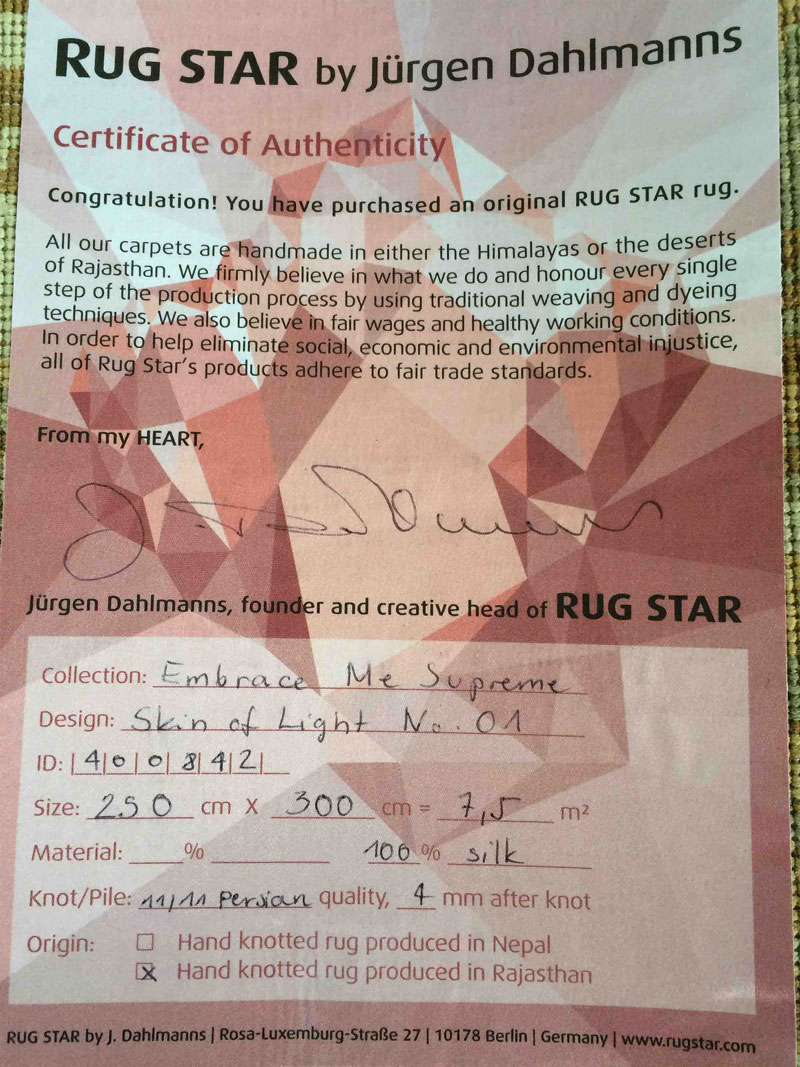 RUG STAR by Jürgen Dahlmanns
Certificate of Authenticity
Congratulation! You have purchased an original RUG STAR rug.
All our carpets are handmade in either the Himalayas or the deserts
of Rajasthan. We firmly believe in what we do and honour every single
step of the production process by using traditional weaving and dyeing
techniques. We also believe in fair wages and healthy working conditions.
In order to help eliminate social, economic and environmental injustice,
all of Rug Star's products adhere to fair trade standards.
From my HEART,
Jürgen Dahlmanns, founder and creative head of RUG STAR
Collection: Embrace Me Supreme
Design: Skin of Light No. 01
ID: |4|0|0|8|4|2|
Size: 250 cm X 300 cm = 7,5 m²
Material: ____% ________ 100 % silk
Knot/Pile: 11/11 Persian quality, 4 mm after knot
Origin: ☐ Hand knotted rug produced in Nepal
☒ Hand knotted rug produced in Rajasthan
RUG STAR by J. Dahlmanns | Rosa-Luxemburg-Straße 27 | 10178 Berlin | Germany | www.rugstar.com